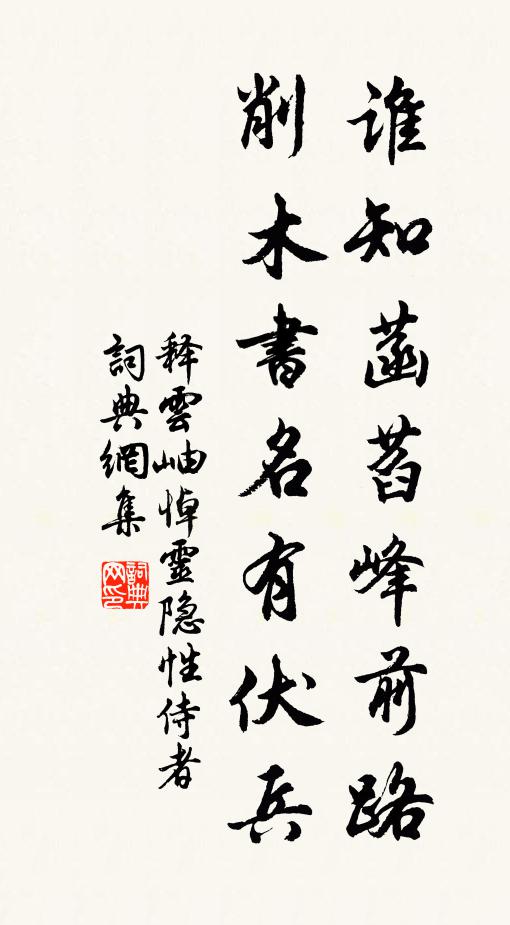 誰知菡萏峰前路
削木書名有伏兵
释雲岫悼靈隐性侍者
詞典網集
詞典网印